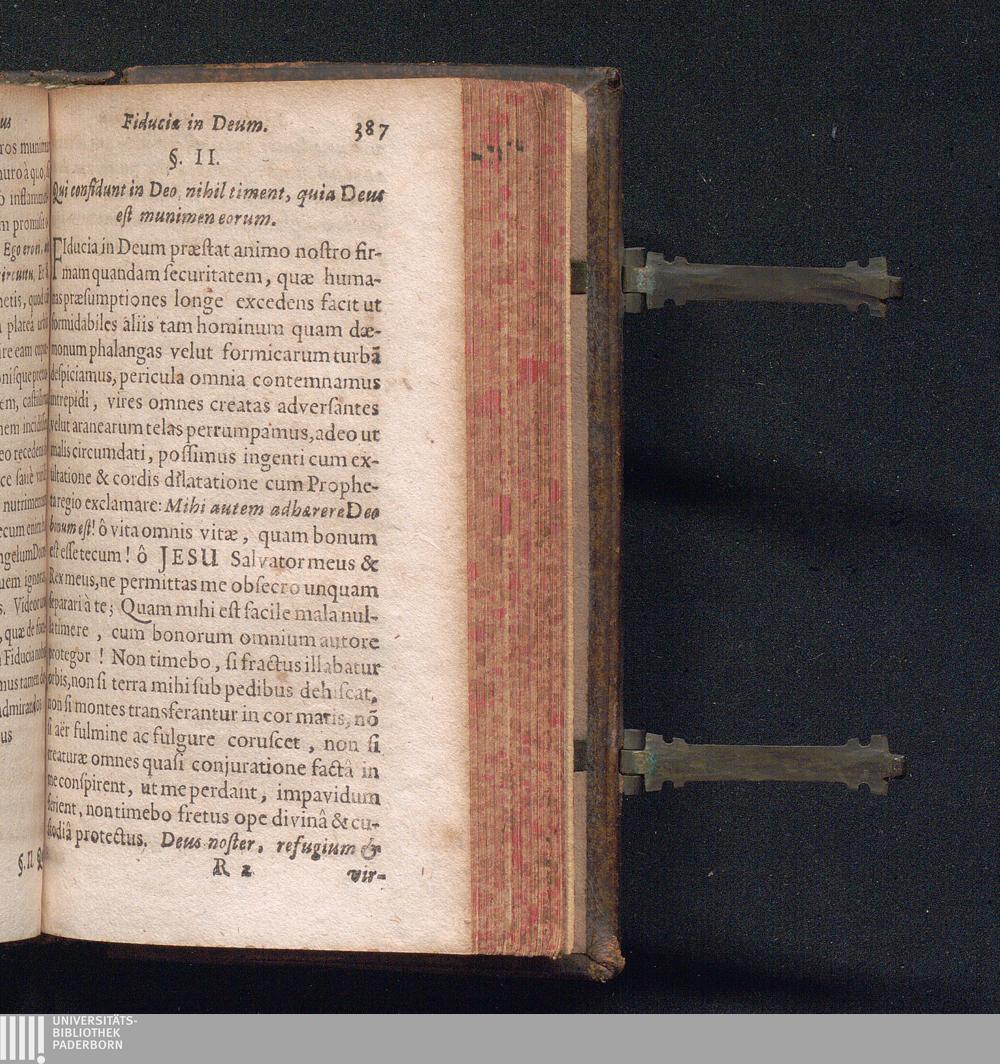 Fiducia in Deum. 387
§. II.
Qui confidunt in Deo, nihil timent, quia Deus
est munimen eorum.
FIducia in Deum præstat animo nostro fir-
mam quandam securitatem, quæ huma-
nas præsumptiones longe excedens facit ut
formidabiles aliis tam hominum quam dæ-
monum phalangas velut formicarum turbã
despiciamus, pericula omnia contemnamus
intrepidi, vires omnes creatas adversantes
velut aranearum telas perrumpamus, adeo ut
malis circumdati, possimus ingenti cum ex-
ultatione & cordis dilatatione cum Prophe-
ta regio exclamare: Mihi autem adhærere Deo
bonum est! ô vita omnis vitæ, quam bonum
est esse tecum! ô JESU Salvator meus &
Rex meus, ne permittas me obsecro unquam
separari à te; Quam mihi est facile mala nul-
la timere, cum bonorum omnium autore
protegor! Non timebo, si fractus illabatur
orbis, non si terra mihi sub pedibus dehiscat,
non si montes transferantur in cor maris, nõ
si aër fulmine ac fulgure coruscet, non si
creaturæ omnes quasi conjuratione factâ in
me conspirent, ut me perdant, impavidum
ferient, non timebo fretus ope divinâ & cu-
stodiâ protectus. Deus noster, refugium &
R 2 vir-
UNIVERSITÄTS-
BIBLIOTHEK
PADERBORN